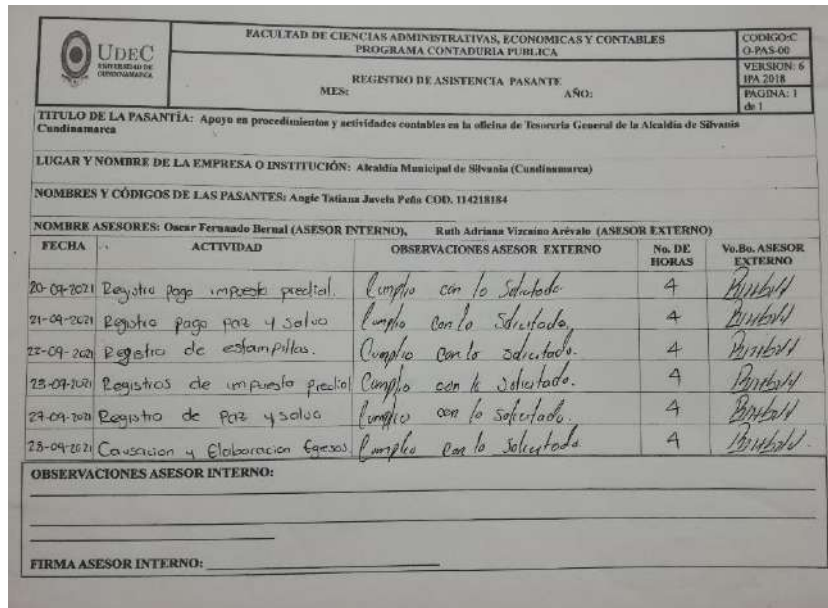 UDEC
UNIVERSIDAD DE
CUNDINAMARCA
FACULTAD DE CIENCIAS ADMINISTRATIVAS, ECONOMICAS Y CONTABLES
PROGRAMA CONTADURIA PUBLICA
CODIGO:C
O-PAS-00
REGISTRO DE ASISTENCIA PASANTE
MES: AÑO:
VERSION: 6
IPA 2018
PAGINA: 1
de 1
TITULO DE LA PASANTÍA: Apoyo en procedimientos y actividades contables en la oficina de Tesorería General de la Alcaldía de Silvania
Cundinamarca
LUGAR Y NOMBRE DE LA EMPRESA O INSTITUCIÓN: Alcaldía Municipal de Silvania (Cundinamarca)
NOMBRES Y CÓDIGOS DE LAS PASANTES: Angie Tatiana Javela Peña COD. 114218184
NOMBRE ASESORES: Oscar Fernando Bernal (ASESOR INTERNO), Ruth Adriana Vizcaíno Arévalo (ASESOR EXTERNO)
FECHA ACTIVIDAD OBSERVACIONES ASESOR EXTERNO No. DE HORAS Vo.Bo. ASESOR EXTERNO
20-09-2021 Registro pago impuesto predial. Cumplio con lo Solicitado. 4
21-09-2021 Registro pago paz y salvo Cumplio con lo Solicitado. 4
22-09-2021 Registro de estampillas. Cumplio con lo solicitado. 4
23-09-2021 Registros de impuesto predial Cumplio con lo Solicitado. 4
27-09-2021 Registro de Paz y salvo Cumplio con lo Solicitado. 4
28-09-2021 Causacion y Elaboracion Egresos Cumplio con lo Solicitado 4
OBSERVACIONES ASESOR INTERNO:
FIRMA ASESOR INTERNO: